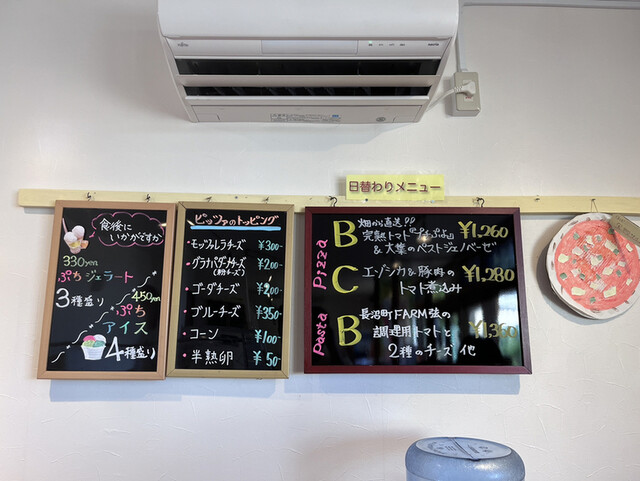 日替わりメニュー
食後に
いかがですか
330yen
ぷちジェラート
3種盛り
450yen
ぷち
アイス
4種盛り
ピッツァのトッピング
・モッツァレラチーズ ¥300-
・グラナパダーノチーズ ¥200-
(粉チーズ)
・ゴーダチーズ ¥200-
・ブルーチーズ ¥350-
・コーン ¥100-
・半熟卵 ¥50-
Pizza
B 畑から直送!! ¥1,260
完熟トマト『ぷよぷよ』
&大葉のペストジェノベーゼ
C エゾシカ&豚肉の ¥1,280
トマト煮込み
Pasta
B 長沼町FARM弦の
調理用トマトと
2種のチーズ 他